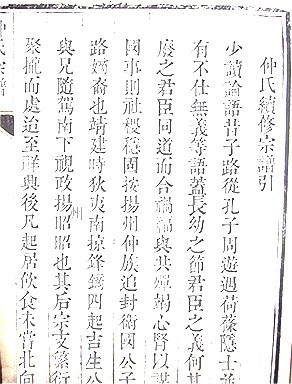 仲氏續修宗譜引
少讀論語昔子路從孔子周遊遇荷蓧隱士羊
有不仕無義等語蓋長幼之節君臣之義何其
廢之君臣同道而合禍福與共殫竭心腎以謀
國事則社稷穩固按揚州仲族追封衛國公子
路嫡裔也靖建時狄夷南掠鋒鏑四起吉生公
與兄隨駕南下視政揚州昭昭也其后宗支繁衍
聚攏而處迨至鮮興後凡起居飲食未嘗北向